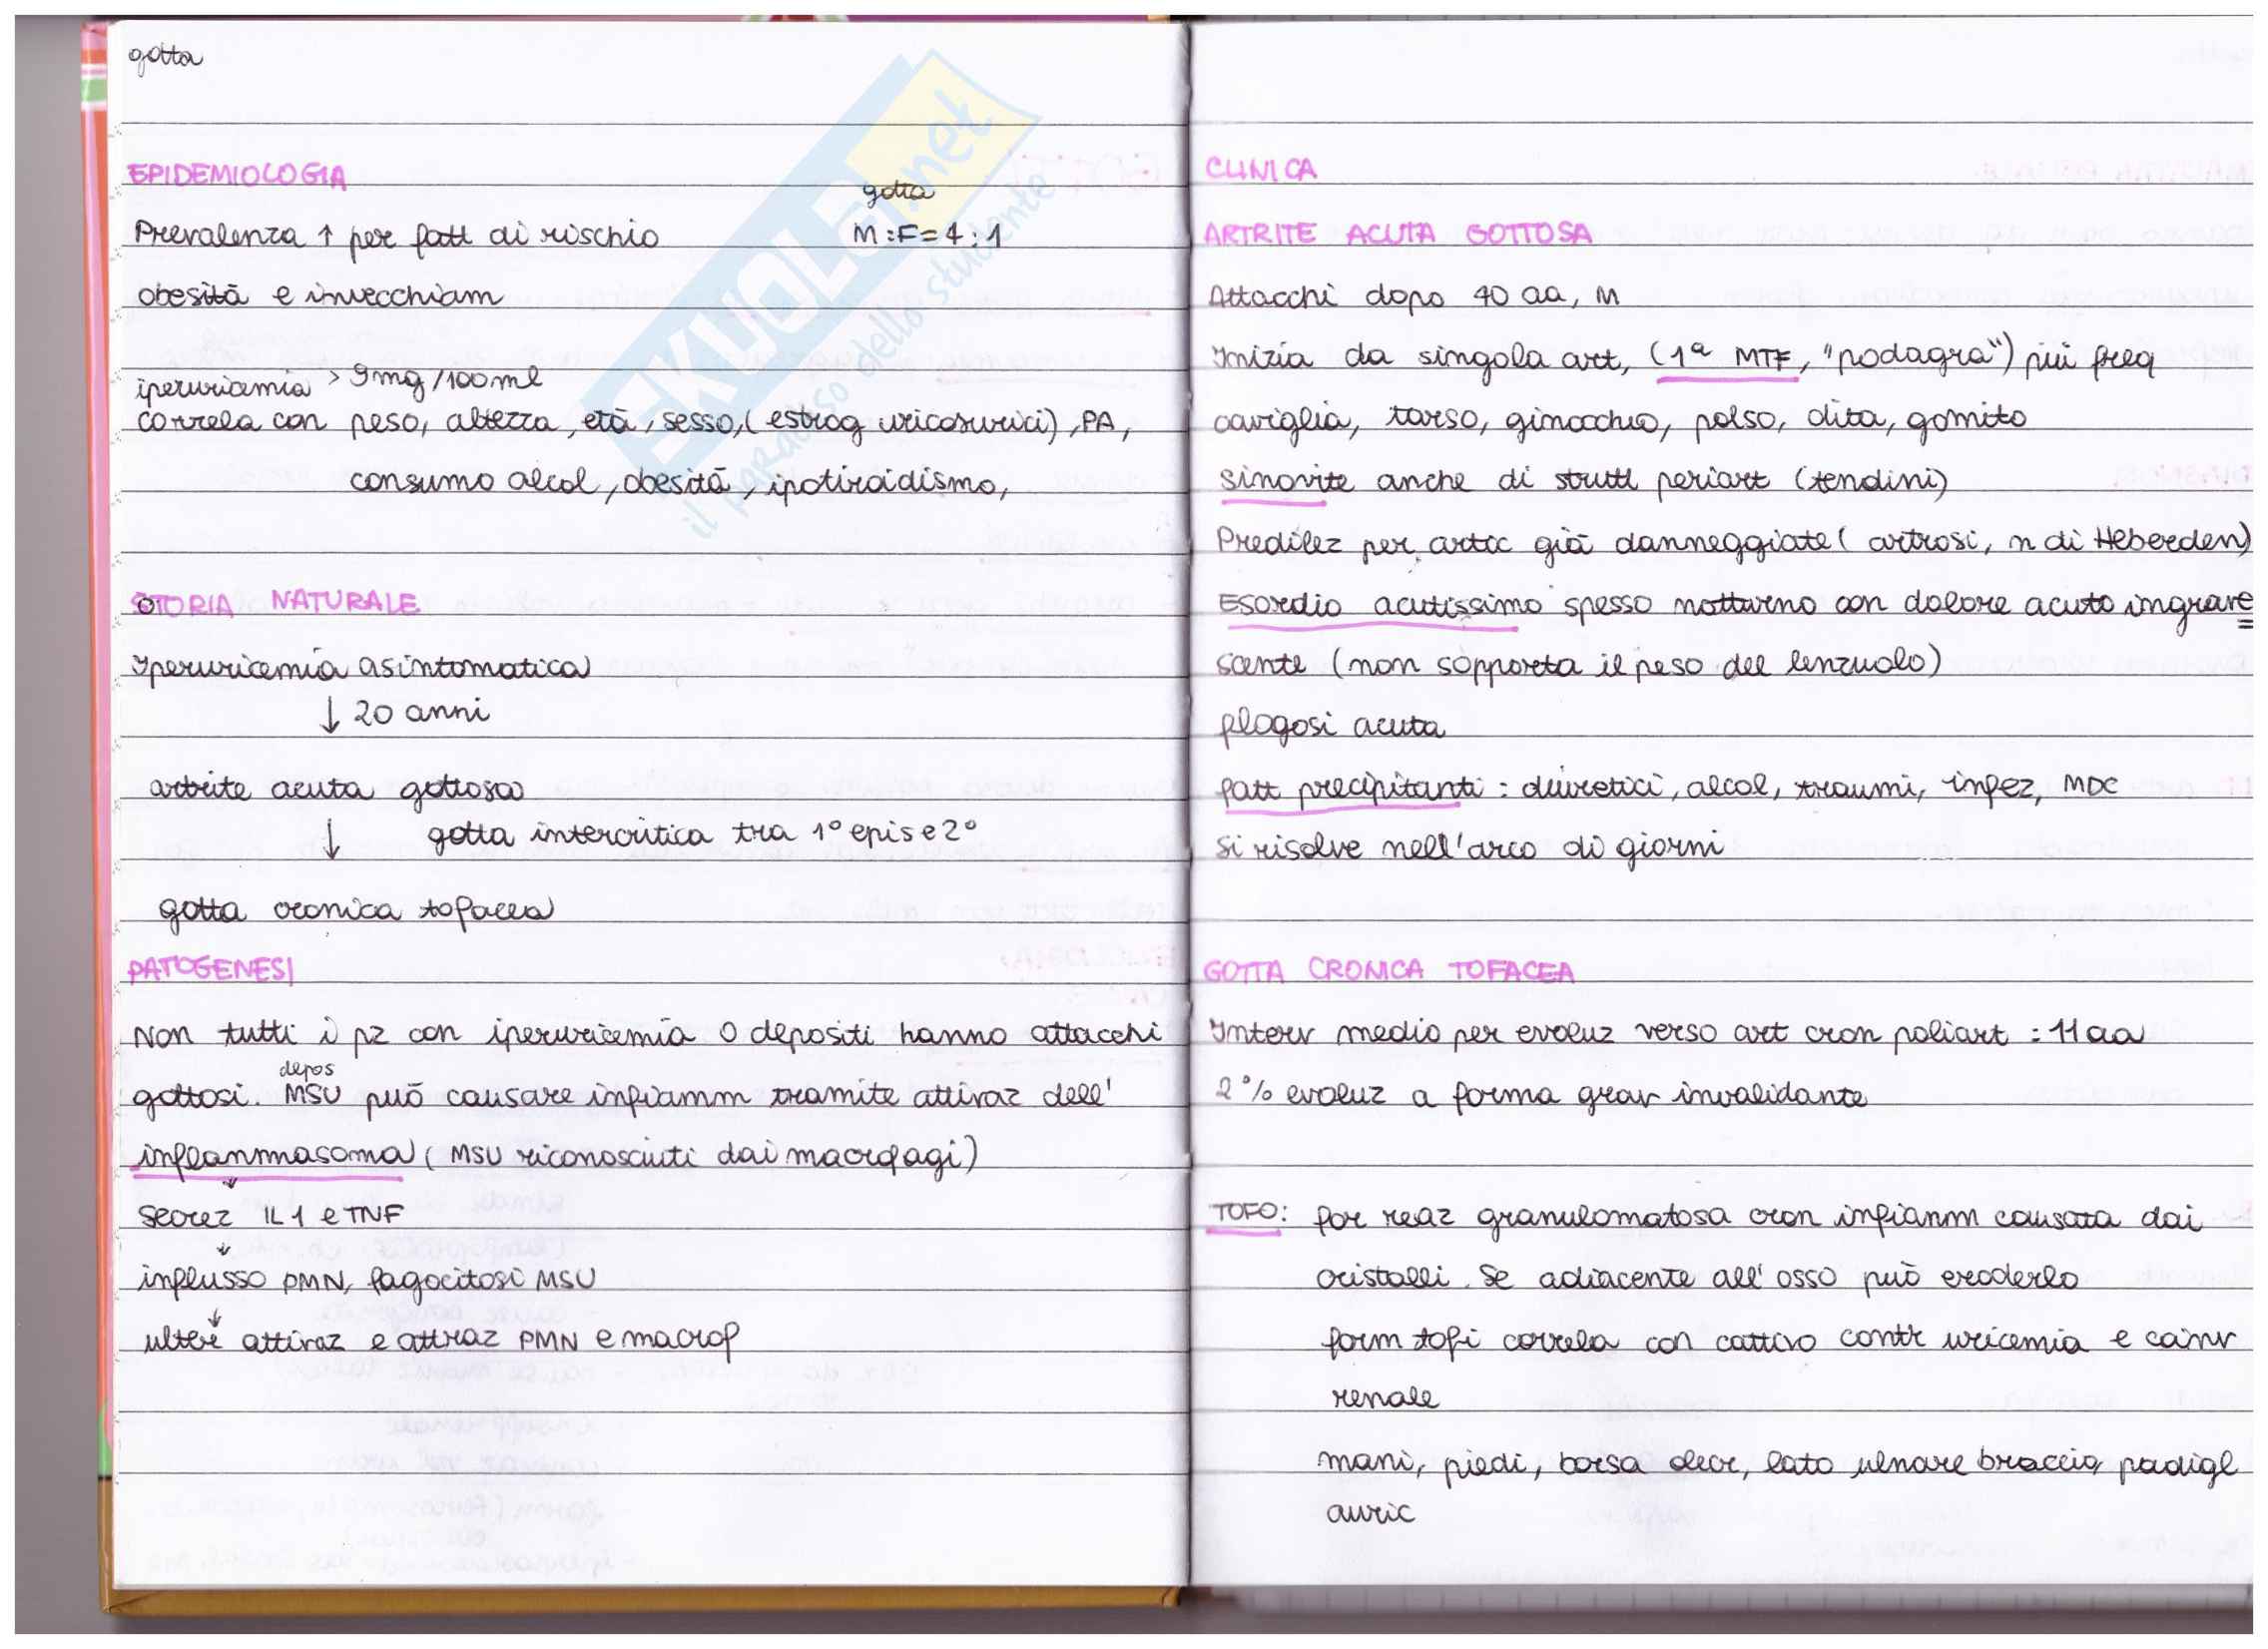 gotta
EPIDEMIOLOGIA
gotta
Prevalenza ↑ per fatt di rischio M:F=4:1
obesità e invecchiam
iperuricemia > 9mg/100ml
correla con peso, altezza, età, sesso, (estrog uricosurici), PA,
consumo alcol, obesità, ipotiroidismo,
STORIA NATURALE
Iperuricemia asintomatica
↓ 20 anni
artrite acuta gottosa
↓ gotta intercritica tra 1° epis e 2°
gotta cronica tofacea
PATOGENESI
Non tutti i pz con iperuricemia o depositi hanno attacchi
depos
gottosi. MSU può causare infiamm tramite attivaz dell'
inflammasoma (MSU riconosciuti dai macrofagi)
↓
secrez IL1 e TNF
↓
influsso PMN, fagocitosi MSU
↓
ulter attivaz e attraz PMN e macrof
CLINICA
ARTRITE ACUTA GOTTOSA
Attacchi dopo 40 aa, M
Inizia da singola art, (1ª MTF, "podagra") più freq
caviglia, tarso, ginocchio, polso, dita, gomito
sinovite anche di strutt periart (tendini)
Predilez per artic già danneggiate (artrosi, n di Heberden)
Esordio acutissimo spesso notturno con dolore acuto ingrave=
scente (non sopporta il peso del lenzuolo)
flogosi acuta
fatt precipitanti: diuretici, alcol, traumi, infez, MDC
si risolve nell'arco di giorni
GOTTA CRONICA TOFACEA
Interv medio per evoluz verso art cron poliart : 11 aa
2% evoluz a forma grav invalidante
TOFO: for reaz granulomatosa cron infiamm causata dai
cristalli. Se adiacente all'osso può eroderlo
form tofi correla con cattivo contr uricemia e coinv
renale
mani, piedi, borsa olecr, lato ulnare braccio, padigl
auric
SKUOLA.net
il paradiso dello studente